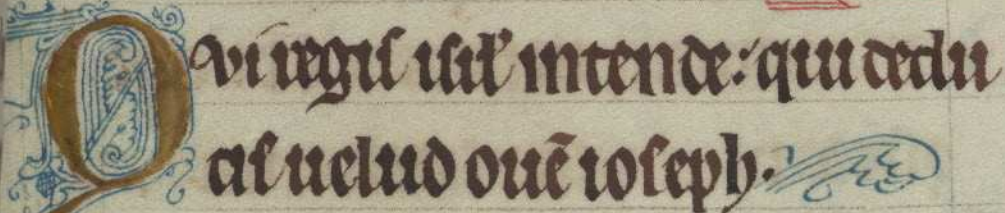 Qvi regis isrl' intende: qui dedu
cis uelud ouē ioseph.